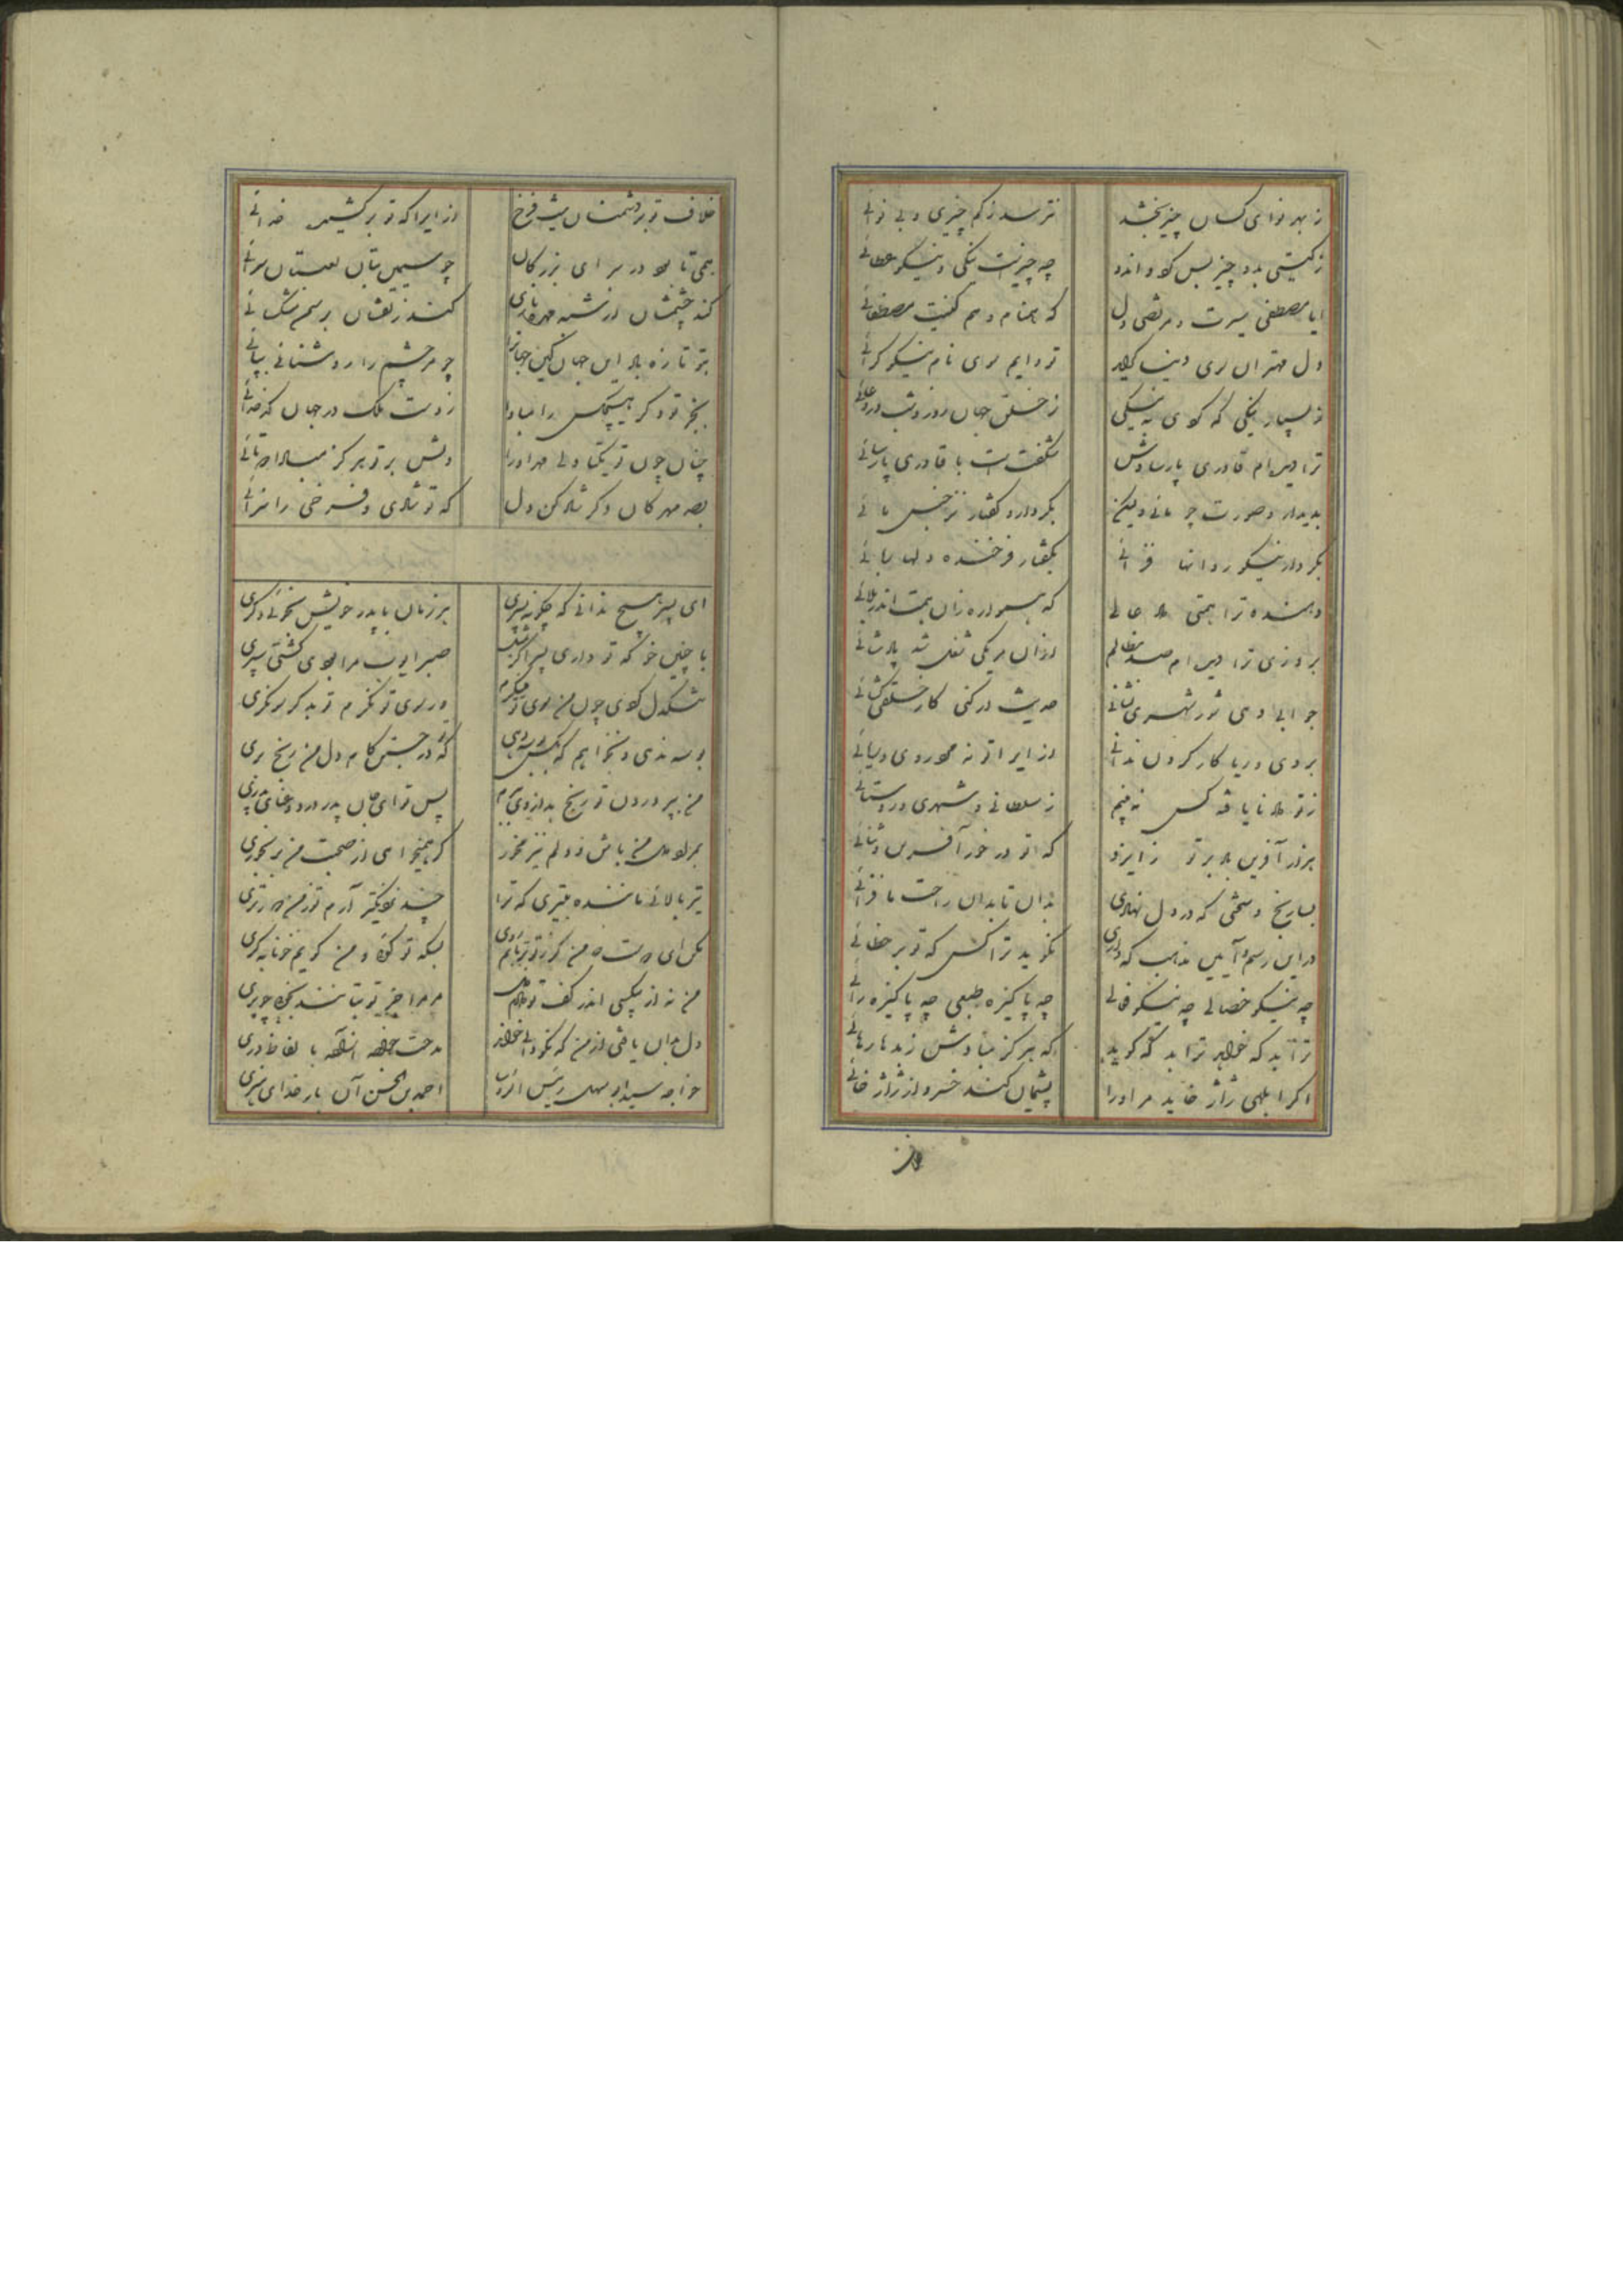 ز بهر نوای کسان چیز بخشد نترسد ز کم چیزی و بی نوائی
ز گیتی بدو چیز بس کرد و اندو چه چیزست نیکی و نیکو عطائی
ایا مصطفی سیرت و مرتضی دل که همنام و هم کنیت مصطفائی
دل مهتران سوی دنیا گراید تو دایم سوی نام نیکو گرائی
ز بسیار نیکی که کردی به نیکی ز خلق جهان روز و شب در دعائی
ترا دیدم قادری پارسا وش شگفتست با قادری پارسائی
بدیدار و صورت چو مائی ولیکن بکردار و گفتار نز جنس مائی
بکردار نیکو روانها فزائی بگفتار فرخنده دلها ربائی
دهنده ترا همتی داد عالی که همواره زان همت اندر بلائی
بروزی ترا دیدم صد تظلم وزان هر یکی شغل شد پادشائی
جوابی دهی شور شهری نشانی حدیث در کنی کار خلقی گشائی
بروی و ریا کار کردن ندانی ازیرا تو نه مرد روی و ریائی
ز تو داد نایافته کس نه بینم ز سلطانی و شهری و روستائی
هزار آفرین باد بر تو ز ایزد که تو در خور آفرین و ثنائی
بسا رنج و سختی که در دل نهادی بدان تا بدان راحت ما فزائی
در این رسم و آیین مذهب که داری نگوید ترا کس که تو بر خطائی
چه نیکو خصالی چه نیکو فعالی چه پاکیزه طبعی چه پاکیزه رائی
ترا بد که خواهد ترا بد که گوید که هرگز مبادش ز بدها رهائی
اگر ابلهی ژاژ خاید مر او را پشیمان کند خسرو از ژاژ خائی
خلاف تو بر دشمنان پیش فرخ ازیرا که تو بر کشیده خدائی
همی تا بود در سرای بزرگان چو سیمین بتان لعبتان سرائی
کند چشمشان از شبه مهره بازی کند زلفشان بر سمن مشک سائی
بتو تازه باد این جهان کین جهانرا چو مر چشم را روشنائی ببائی
بجز تو دگر هیچکس را مبادا ز دست ملک در جهان کدخدائی
چنان چون تو یکتا دلی مهر او را دلش بر تو هرگز مبادا دوتائی
بصد مهرگان دگر شاد کن دل که تو شادی و فرخی را سزائی
ای پسر هیچ ندانی که چگونه پسری هر زمان با پدر خویش بخوئی دگری
با چنین خو که تو داری پسرا گر صبر ایوب مرا بودی گشتی سپری
سنگدل گردی چون من سوی تو ور سوی تو نگرم تو بدگر سو نگری
بوسه ندهی و نخواهم که که در جستن کام دل من رنج بری
من بپروردن تو رنج بدان روی برم پس ترا ای جان پدر
بمراد دل من باش و دلم نیز مخور گر همیخواهی از صحبت من برخوری
تیر بالائی ماننده تیری که ترا چند نزدیکتر آرم تو ز من دورتری
من نه از بیکسی اندر کف تو مر مرا جز تو
دل بدان یافتی از من که نکو دانی خواند مدحت خواجه آزاده بالفاظ دری
خواجه سید ابوسهل رئیس احمد بن الحسن آن بار خدای هنری